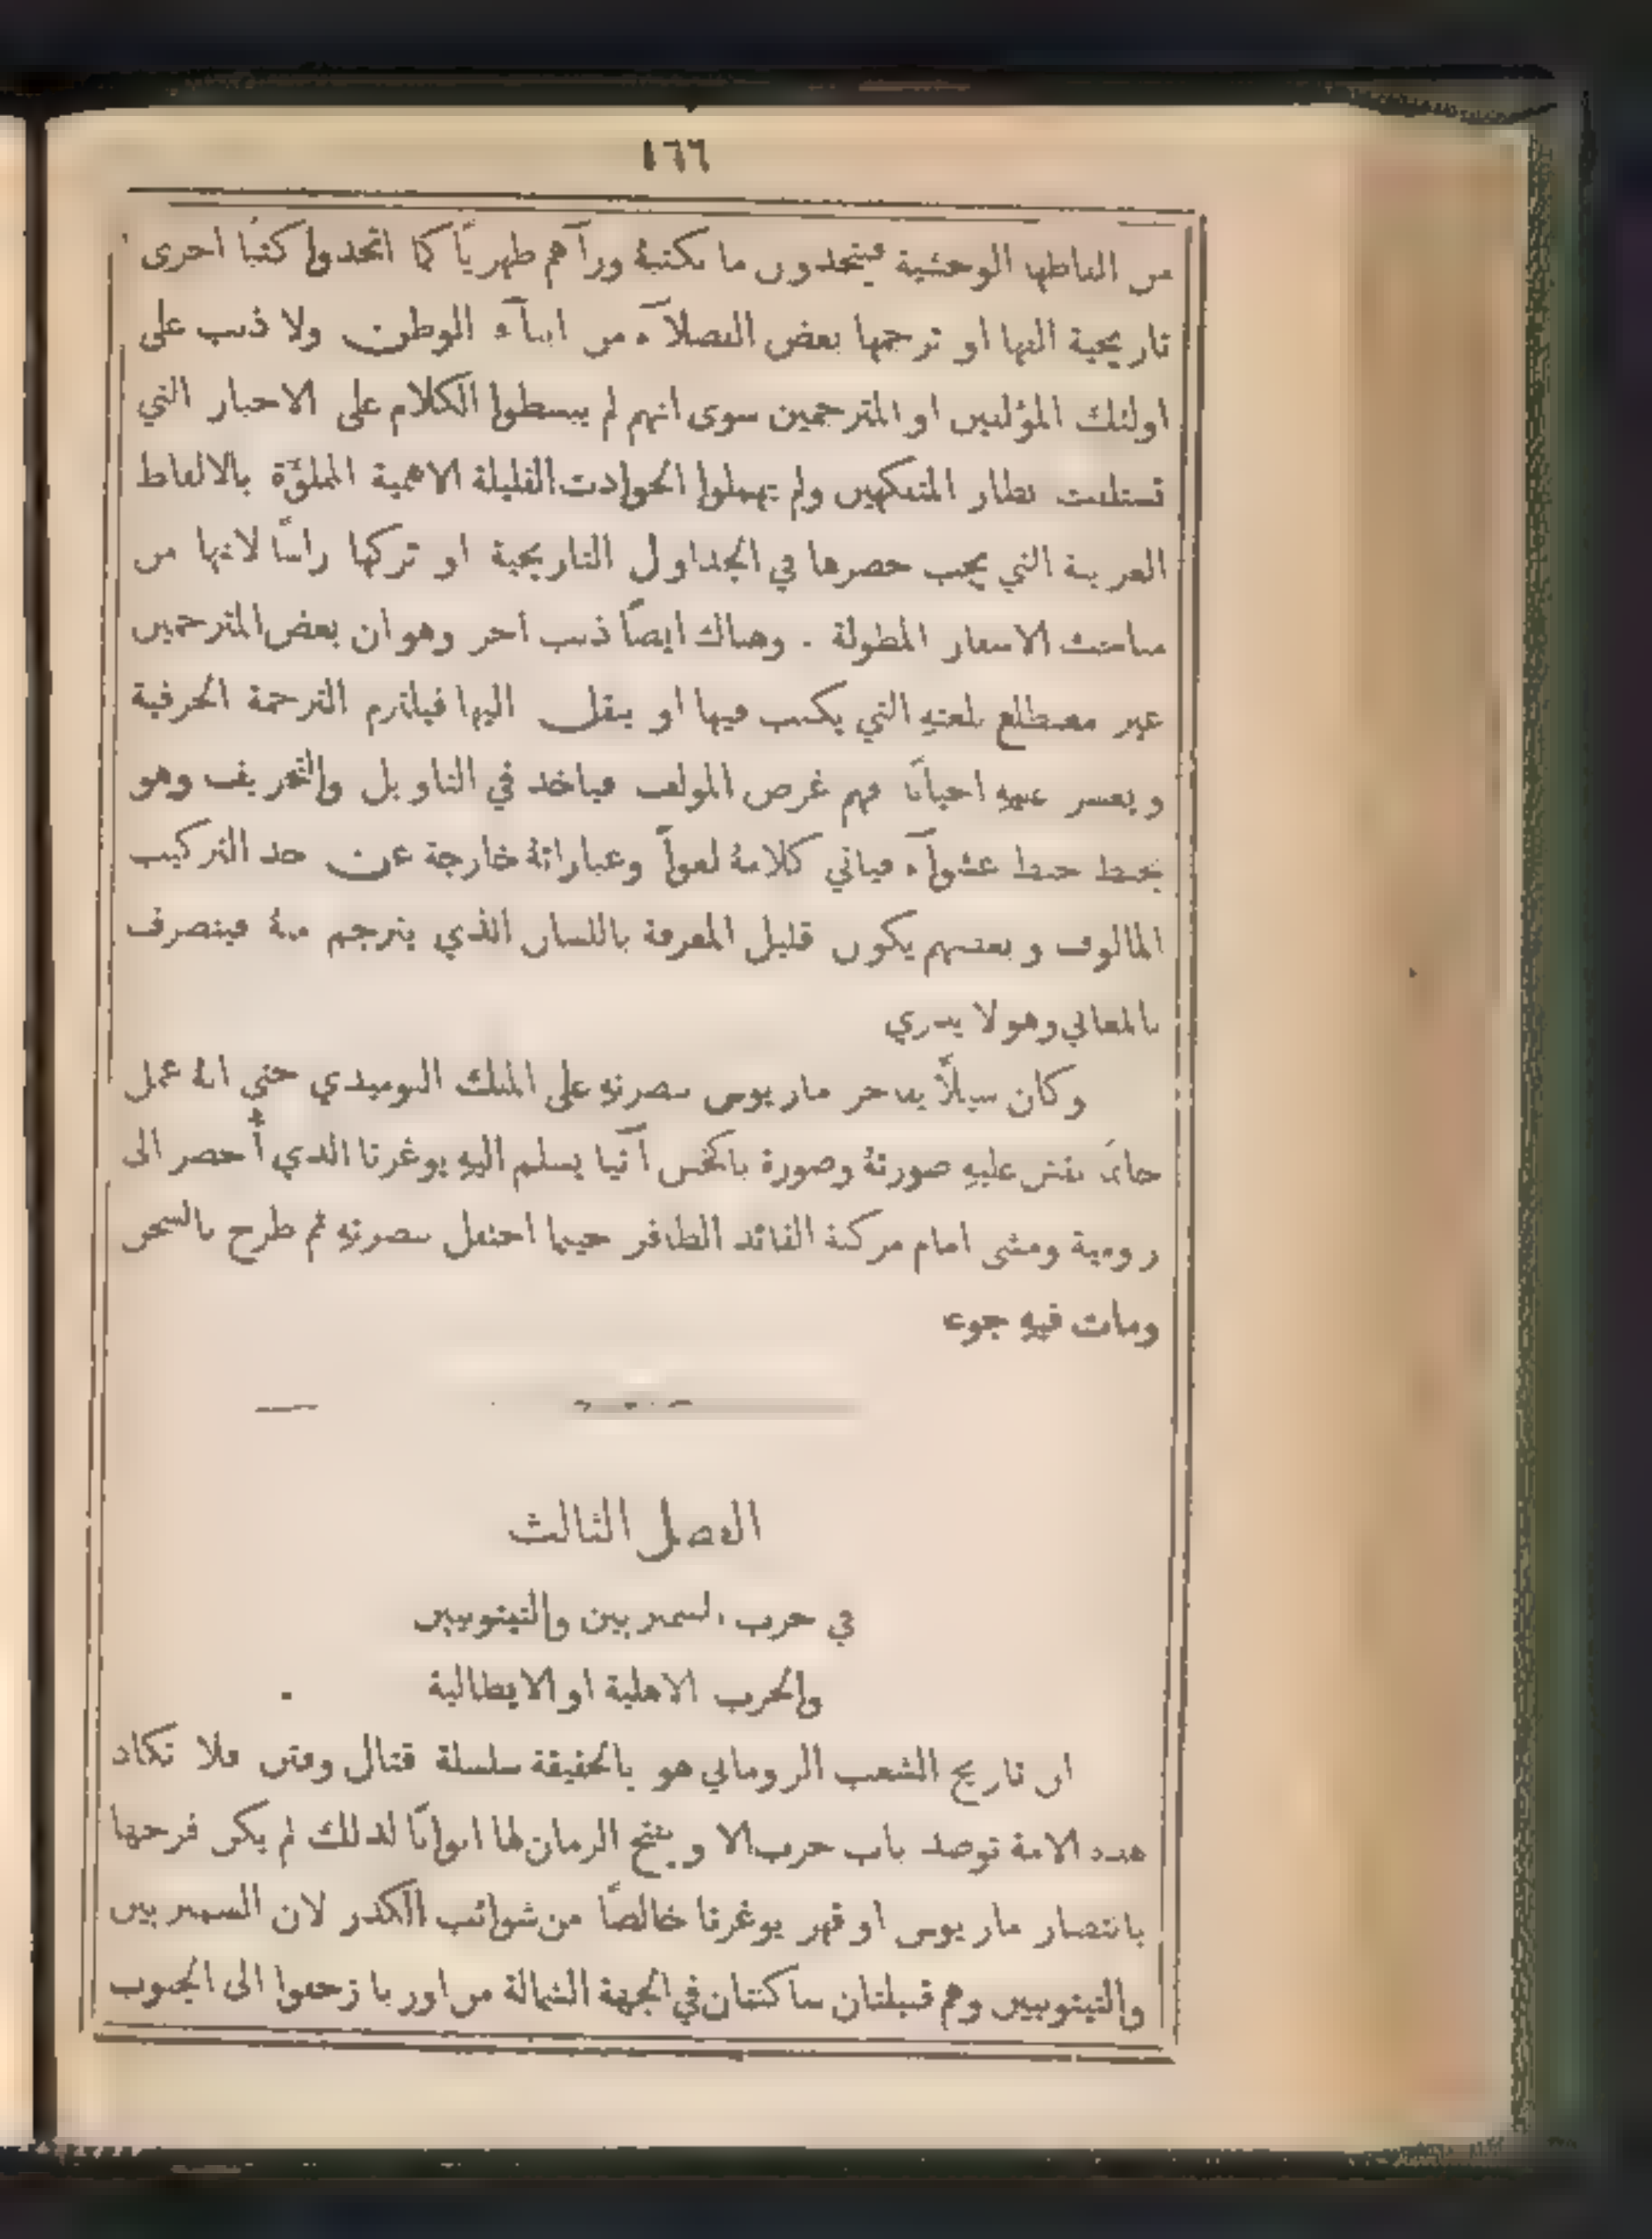 ١٦٦
من الفاظها الوحشية فيتخذون ما نكتبهُ ورآهم ظهريًا كما اتخذوا كتبًا اخرى
تاريخية الفها او ترجمها بعض الفضلآء من ابنآء الوطن ولا ذنب على
اولئك المؤلفين او المترجمين سوى انهم لم يبسطوا الكلام على الاخبار التي
تستلفت نظار المتفكهين ولم يهملوا الحوادث القليلة الاهمية المملوَّة بالالفاظ
الغريبة التي يجب حصرها في الجداول التاريخية او تركها راسًا لانها من
مباحث الاسفار المطولة . وهناك ايضًا ذنب آخر وهو ان بعض المترجمين
غير مضطلع بلغتهِ التي يكتب فيها او ينقل اليها فيلتزم الترجمة الحرفية
ويعسر عليهِ احيانًا فهم غرض المولف فياخذ في التاويل والتحريف وهو
يخبط خبط عشوآء فياتي كلامهُ لغوًا وعباراتهُ خارجة عن حد التركيب
المالوف وبعضهم يكون قليل المعرفة باللسان الذي يترجم منهُ فيتصرف
بالمعاني وهو لا يدري
وكان سيلَّا يفاخر ماريوس بنصرتهِ على الملك النوميدي حتى انهُ عمل
خاتمًا نقش عليهِ صورتهُ وصورة باكخس آتيا يسلم اليهِ يوغرتا الذي أُحضر الى
رومية ومشى امام مركبة القائد الظافر حينما احتفل بنصرتهِ ثم طرح بالسجن
ومات فيهِ جوعا
الفصل الثالث
في حرب السمبريين والتيتونيين
والحرب الاهلية او الايطالية
ان تاريخ الشعب الروماني هو بالحقيقة سلسلة قتال وفتن فلا تكاد
هذه الامة توصد باب حرب الا ويفتح الزمان لها ابوابًا لذلك لم يكن فرحها
بانتصار ماريوس او قهر يوغرتا خالصًا من شوائب الكدر لان السمبريين
والتيتونيين وهم قبيلتان ساكنتان في الجهة الشمالة من اوربا زحفوا الى الجنوب